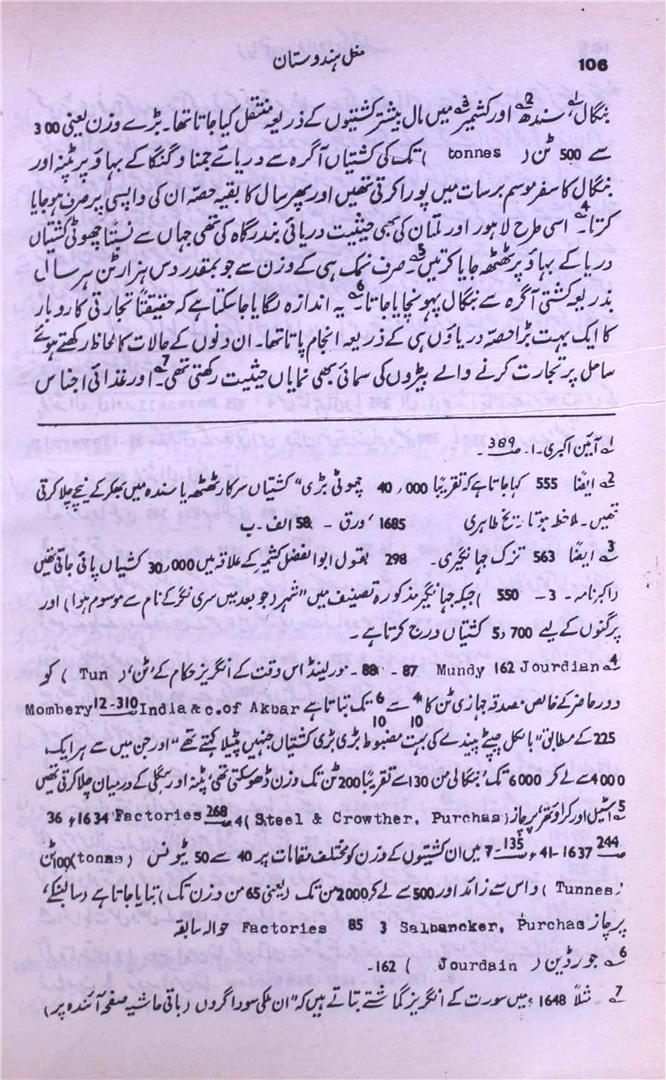 106
مغل ہندوستان
بنگال،1 سندھ2 اور کشمیر3 میں مال بیشتر کشتیوں کے ذریعہ منتقل کیا جاتا تھا۔ بڑے وزن یعنی 300
سے 500 ٹن ( tonnes ) تک کی کشتیاں آگرہ سے دریائے جمنا و گنگا کے بہاؤ پر پٹنہ اور
بنگال کا سفر موسم برسات میں پورا کرتی تھیں اور پھر سال کا بقیہ حصہ ان کی واپسی پر صرف ہو جایا
کرتا۔4 اسی طرح لاہور اور ملتان کی بھی حیثیت دریائی بندرگاہ کی تھی جہاں سے نسبتاً چھوٹی کشتیاں
دریا کے بہاؤ پر ٹھٹھہ جایا کرتیں۔5 صرف نمک ہی کے وزن سے جو بمقدر دس ہزار ٹن ہر سال
بذریعہ کشتی آگرہ سے بنگال پہونچایا جاتا۔6 یہ اندازہ لگایا جا سکتا ہے کہ حقیقتاً تجارتی کاروبار
کا ایک بہت بڑا حصہ دریاؤں ہی کے ذریعہ انجام پاتا تھا۔ ان دنوں کے حالات کا لحاظ رکھتے ہوئے
ساحل پر تجارت کرنے والے بیڑوں کی سمائی بھی نمایاں حیثیت رکھتی تھی۔7 اور غذائی اجناس
1 آئین اکبری۔ا۔ ص 389۔
2 ایضاً 555 کہا جاتا ہے کہ تقریباً 40,000 چھوٹی بڑی" کشتیاں سرکار ٹھٹھہ یا سندہ میں بھکر کے نیچے چلا کرتی
تھیں۔ ملاحظہ ہو تاریخ طاہری 1685، ورق - 58 الف۔ ب
3 ایضاً 563 تزک جہانگیری۔ 298 بقول ابوالفضل کشمیر کے علاقہ میں 30,000 کشتیاں پائی جاتی تھیں
(اکبرنامہ۔ 3 - 550 ) جبکہ جہانگیر مذکورہ تصنیف میں "شہر (جو بعد میں سری نگر کے نام سے موسوم ہوا) اور
پرگنوں کے لیے 5,700 کشتیاں درج کرتا ہے۔
4 Jourdian 162 Mundy 87 - 88 - مورلینڈ اس وقت کے انگریز حکام کے "ٹن" ( Tun ) کو
دور حاضر کے خالص مصدقہ جہازی ٹن کا 4/10 سے 6/10 تک بتاتا ہے India & c.of Akbar 310-12 Mombery
225 کے مطابق "بالکل چپٹے پیندے کی بہت مضبوط بڑی بڑی کشتیاں جنہیں پٹیلا کہتے تھے" اور جن میں سے ہر ایک
4000 سے لے کر 6000 تک "بنگالی من 130 سے تقریباً 200 ٹن تک وزن ڈھو سکتی تھی" پٹنہ اور ہگلی کے درمیان چلا کرتی تھیں
5 اسٹیل اور کراوتھر، پرچاز (Steel & Crowther, Purchas) 4، 268 Factories 1634، 36
244 41-1637، 135 - 7 میں ان کشتیوں کے وزن کو مختلف مقامات پر 40 سے 50 ٹیونس (tonas) 100 ٹن
(Tunnes ) واس سے زائد اور 500 سے لے کر 2000 من تک (یعنی 65 من وزن تک) بتایا جاتا ہے (سالبنکے،
پرچاز Salbancker, Purchas 3 85 Factories حوالہ سابقہ
6 جورڈین ( Jourdain ) 162-
7۔ مثلاً 1648ء میں سورت کے انگریز گماشتے بتاتے ہیں کہ "ان ملکی سوداگروں (باقی حاشیہ صفحہ آئندہ پر)